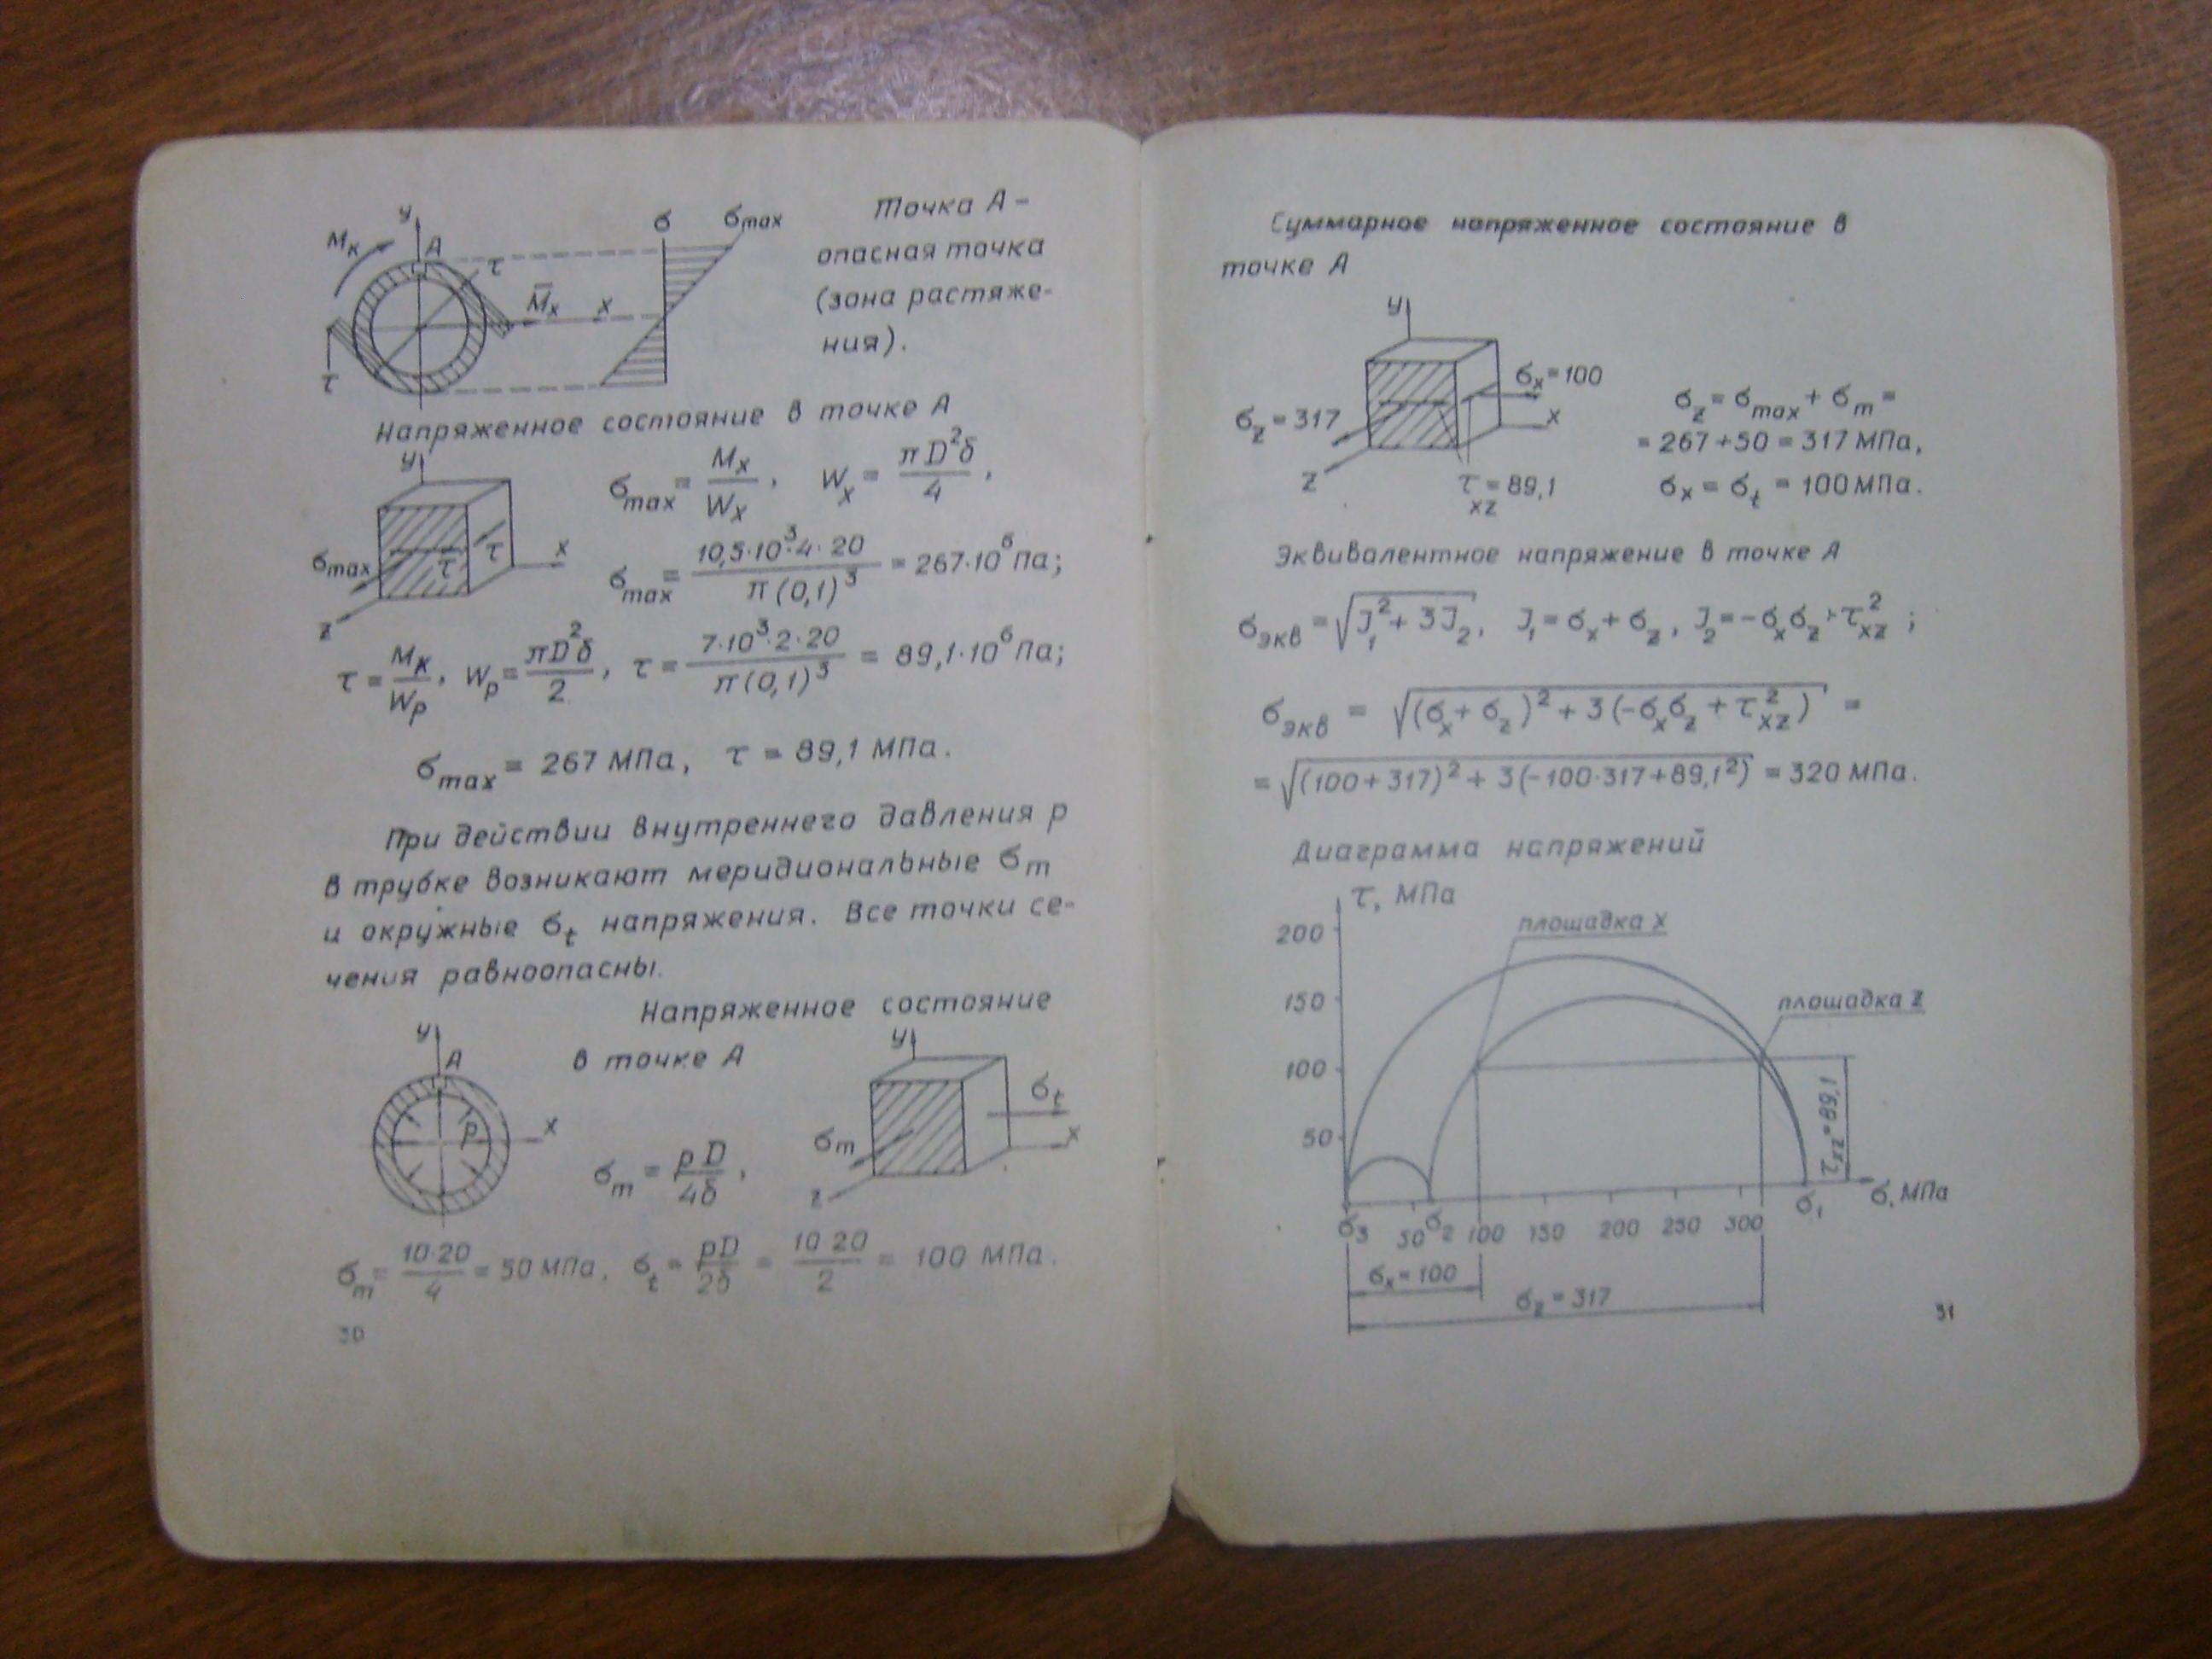 y
Mк
A
τ
M̅x
x
τ
σ σmax
Точка А –
опасная точка
(зона растяже-
ния).
Напряженное состояние в точке А
y
σmax
τ
τ
x
z
σmax = Mx/Wx , Wx = πD²δ/4 ,
σmax = 10,5·10³·4·20/π(0,1)³ = 267·10⁶ Па;
τ = Mк/Wp , Wp = πD²δ/2 , τ = 7·10³·2·20/π(0,1)³ = 89,1·10⁶ Па;
σmax = 267 МПа, τ = 89,1 МПа.
При действии внутреннего давления р
в трубке возникают меридиональные σm
и окружные σt напряжения. Все точки се-
чения равноопасны.
Напряженное состояние
в точке А
y
A
p
x
σm = pD/4δ ,
y
σt
σm
x
z
σm = 10·20/4 = 50 МПа, σt = pD/2δ = 10 20/2 = 100 МПа.
30
Суммарное напряженное состояние в
точке А
y
σx = 100
σz = 317
x
z
τxz = 89,1
σz = σmax + σm =
= 267 + 50 = 317 МПа,
σx = σt = 100 МПа.
Эквивалентное напряжение в точке А
σэкв = √(J₁² + 3J₂), J₁ = σx + σz, J₂ = –σxσz + τ²xz ;
σэкв = √((σx + σz)² + 3(–σxσz + τ²xz)) =
= √((100 + 317)² + 3(–100·317 + 89,1²)) = 320 МПа.
Диаграмма напряжений
τ, МПа
площадка x
200
150
площадка z
100
τxz = 89,1
50
σ3 50 σ2 100 150 200 250 300 σ1 σ, МПа
σx = 100
σz = 317
31